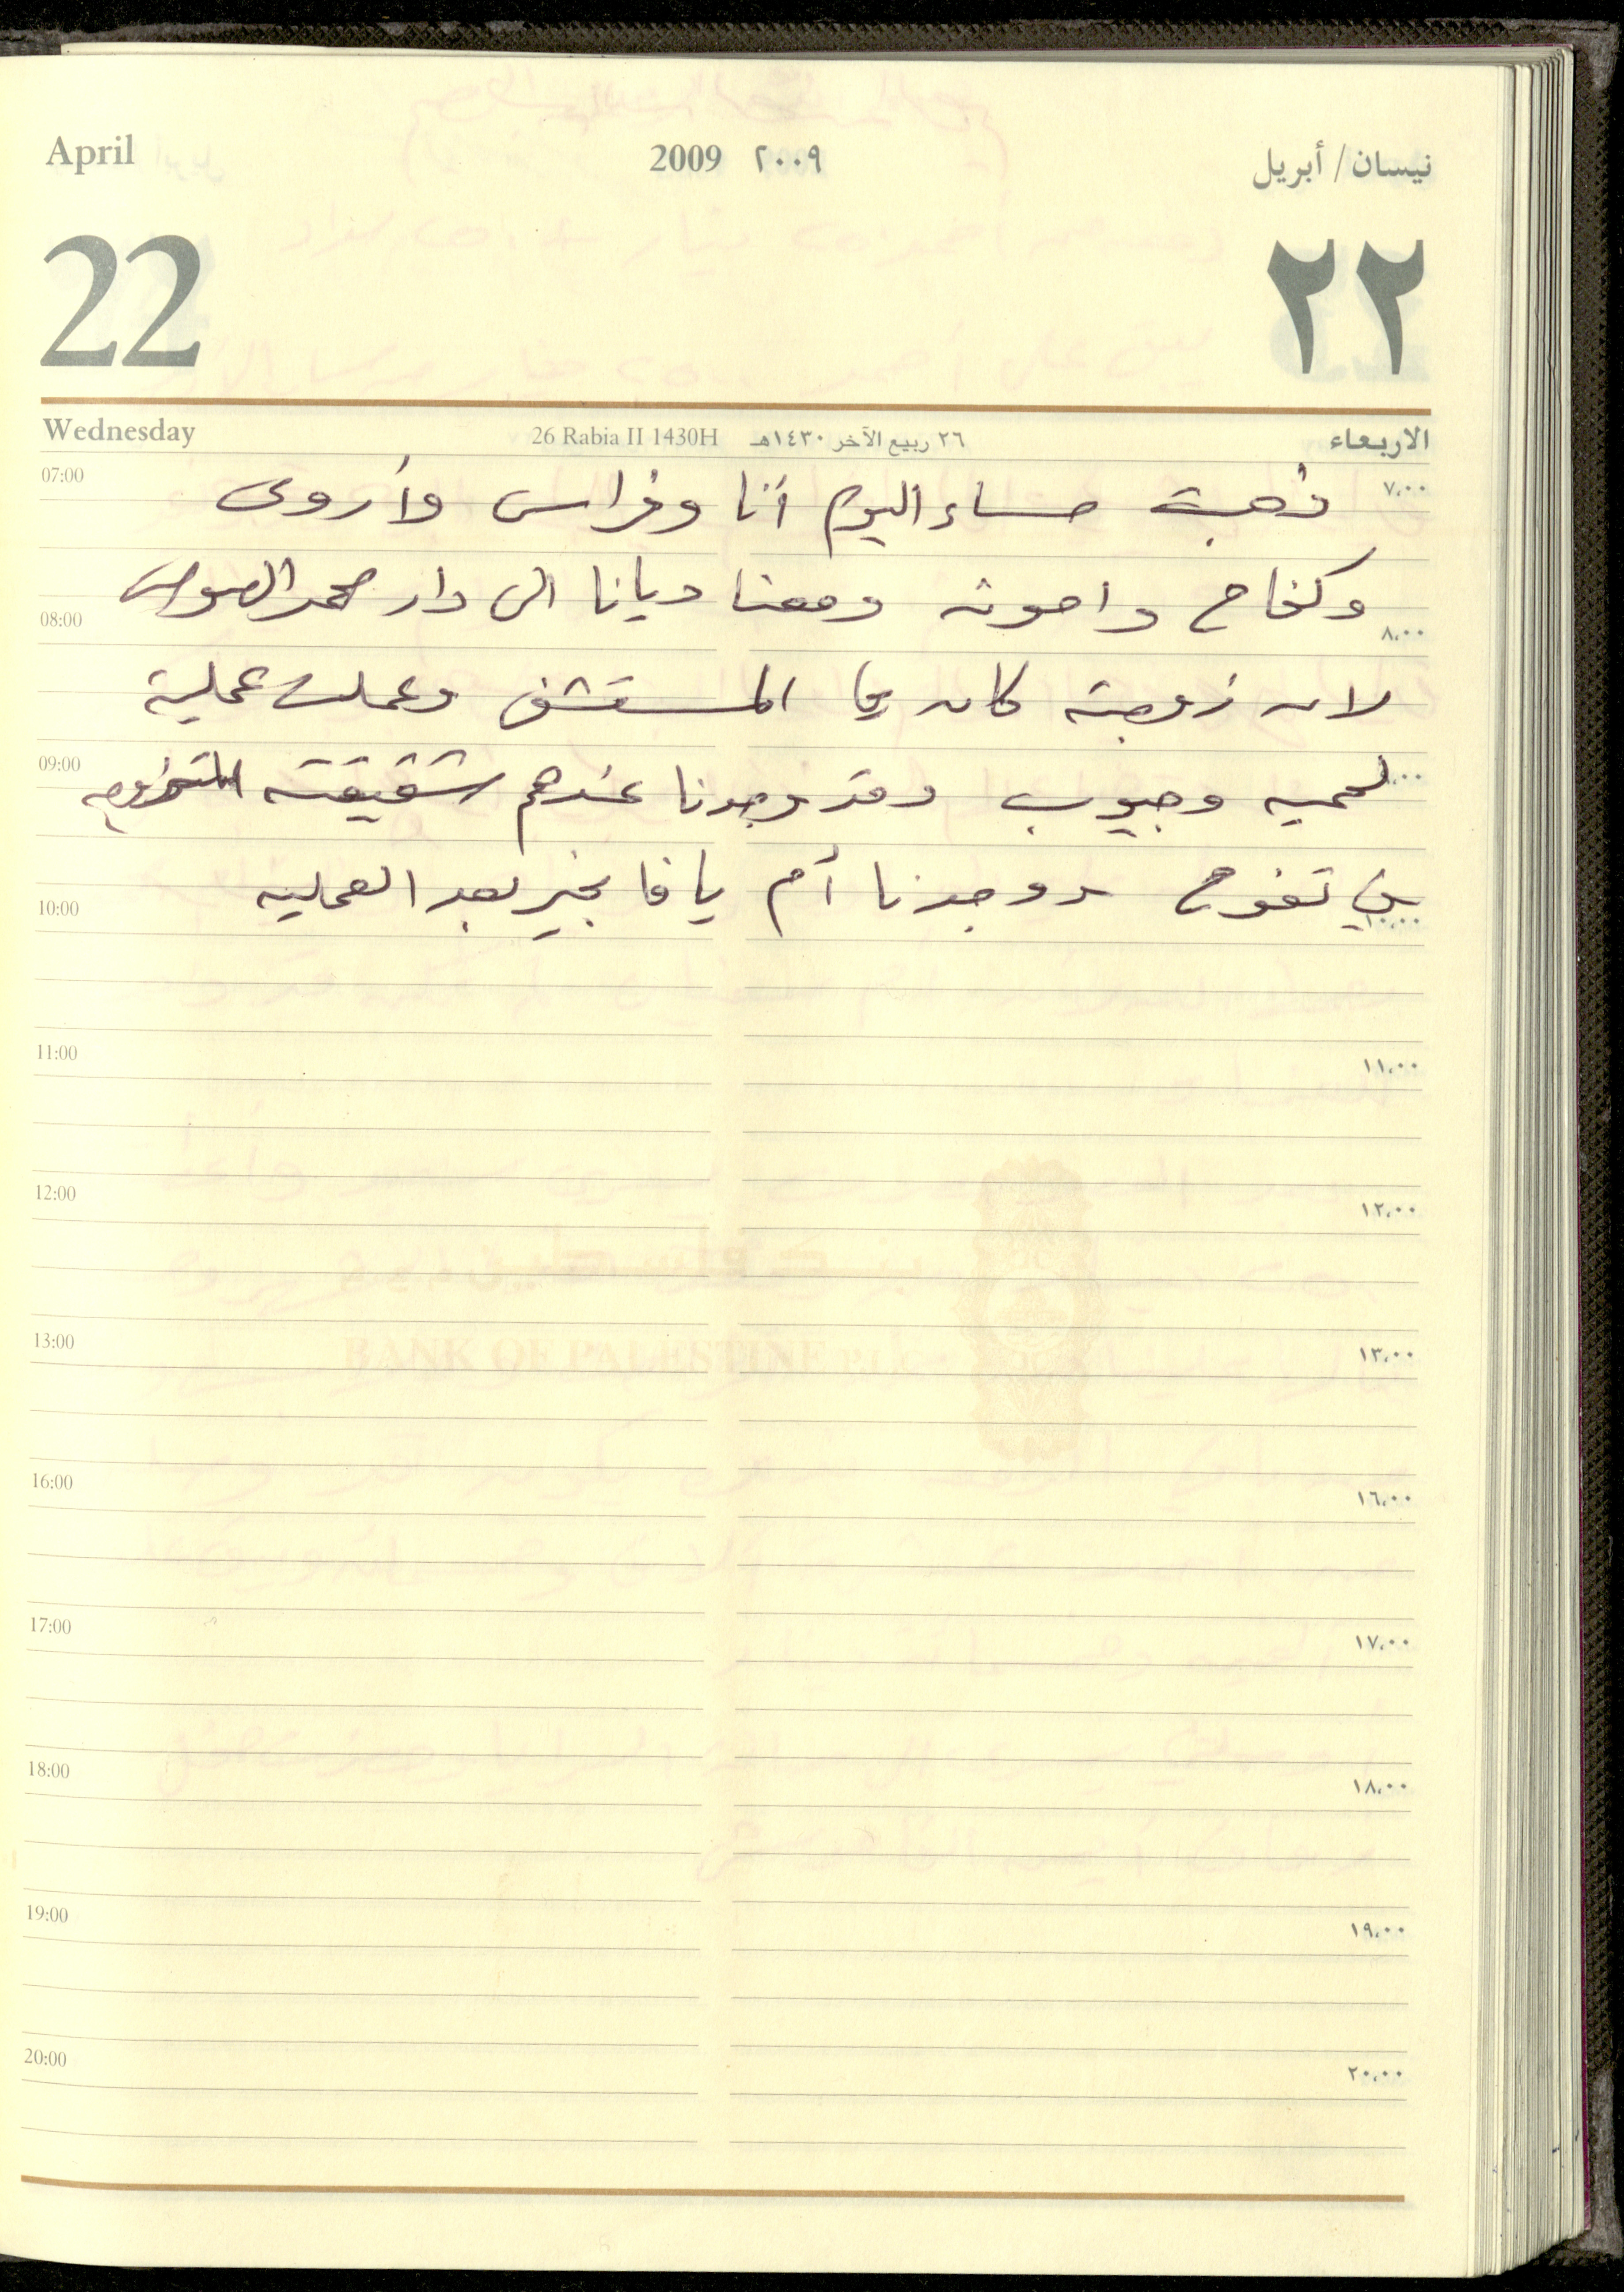 April 2009 ٢٠٠٩ نيسان / أبريل
22 ٢٢
Wednesday 26 Rabia II 1430H ٢٦ ربيع الآخر ١٤٣٠هـ الاربعاء
07:00 ٧،٠٠
ذهبت مساء اليوم أنا وفراس وأروى
وكفاح واخوته ومعنا ديانا الى دار محمد
08:00 ٨،٠٠
لان زوجته كانت في المستشفى وعملت عملية
09:00
لحمية وجيوب وقد وجدنا عندهم شقيقته
بيت تفوح ووجدنا أم يافا بخير بعد العملية
10:00 ١٠،٠٠
11:00 ١١،٠٠
12:00 ١٢،٠٠
بنك فلسطين
13:00 BANK OF PALESTINE P.L.C ١٣،٠٠
16:00 ١٦،٠٠
17:00 ١٧،٠٠
18:00 ١٨،٠٠
19:00 ١٩،٠٠
20:00 ٢٠،٠٠